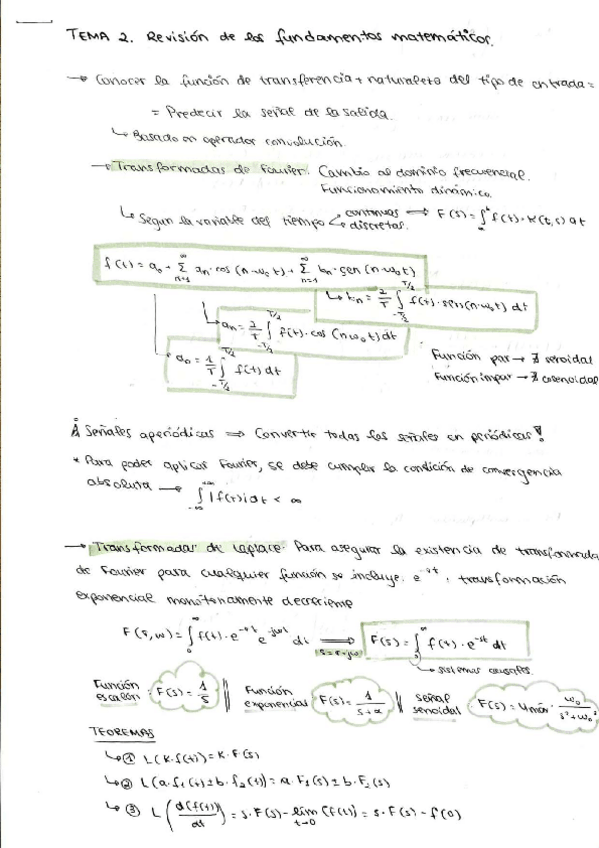 TEMA 2. Revisión de los fundamentos matemáticos.
→ Conocer la función de transferencia + naturaleza del tipo de entrada =
= Predecir la señal de la salida.
↳ Basado en operador convolución.
→ Transformadas de Fourier. Cambio al dominio frecuencial.
Funcionamiento dinámico.
↳ Según la variable del tiempo < continuas ⟹ F(s) = ∫ₐᵇ f(t)·K(t,s) dt
discretas.
f(t) = a₀ + Σ_{n=1}^{∞} aₙ·cos(n·ω₀t) + Σ_{n=1}^{∞} bₙ·sen(n·ω₀t)
↳ bₙ = 2/T ∫_{-T/2}^{T/2} f(t)·sen(n·ω₀t) dt
↳ aₙ = 2/T ∫_{-T/2}^{T/2} f(t)·cos(nω₀t) dt
aₙ = 1/T ∫_{-T/2}^{T/2} f(t) dt
Función par → ∄ senoidal
Función impar → ∄ cosenoidal
¡A señales aperiódicas ⟹ Convertir todas las señales en periódicas!
* Para poder aplicar Fourier, se debe cumplir la condición de convergencia
absoluta → ∫_{-∞}^{+∞} |f(t)| dt < ∞
→ Transformadas de Laplace. Para asegurar la existencia de transformada
de Fourier para cualquier función se incluye e^{-σt}, transformación
exponencial monótonamente decreciente
F(σ,ω) = ∫₀^∞ f(t)·e^{-σt} e^{-jωt} dt ⟶ s=σ+jω F(s) = ∫₀^∞ f(t)·e^{-st} dt
→ sistemas causales.
Función escalón: F(s) = 1/s || Función exponencial: F(s) = 1/(s+a) || Señal senoidal: F(s) = Umáx · ω₀/(s²+ω₀²)
TEOREMAS
↳ ① L(K·f(t)) = K·F(s)
↳ ② L(a·f₁(t) ± b·f₂(t)) = a·F₁(s) ± b·F₂(s)
↳ ③ L(d(f(t))/dt) = s·F(s) − lím_{t→0} [f(t)] = s·F(s) − f(0)